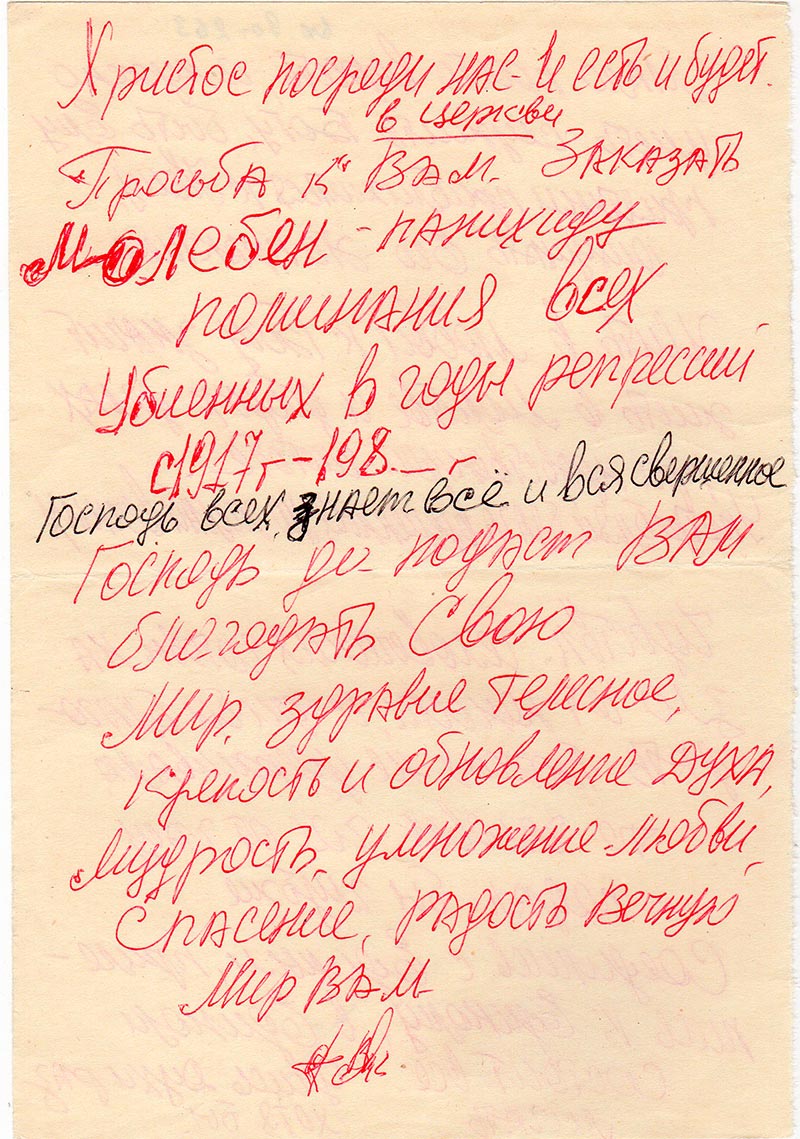 Христос посреди нас – и есть и будет.
в церкви
Просьба к Вам. Заказать
Молебен – панихиду
поминания всех
Убиенных в годы репрессий
с 1917 г – 198__ г
Господь всех, знает всё и вся свершенное
Господь да подаст Вам
благодать Свою
Мир, здравие телесное,
крепость и обновление Духа,
мудрость, умножение любви,
Спасение, радость вечную
Мир Вам